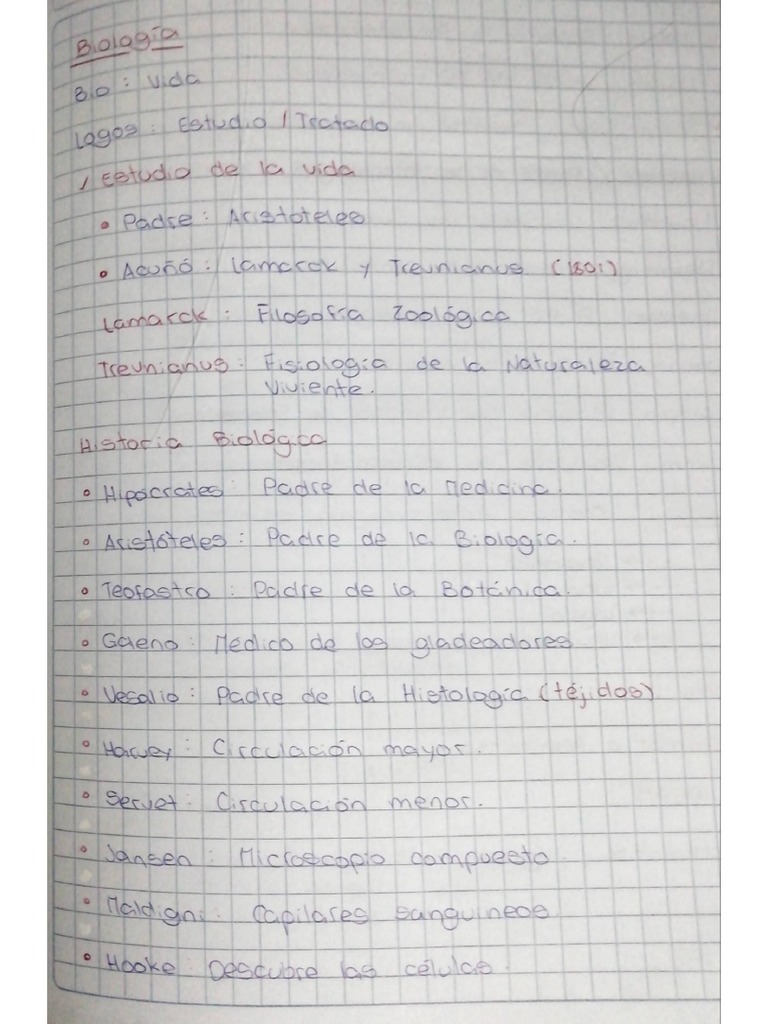 Biología
Bio : Vida
Logos : Estudio / Tratado
/ Estudio de la vida
• Padre : Aristoteles
• Acuñó : Lamarck y Treunianus (1801)
Lamarck : Filosofía Zoológica
Treunianus : Fisiologia de la Naturaleza
Viviente.
Historia Biológica
• Hipócrates : Padre de la Medicina.
• Aristóteles : Padre de la Biología.
• Teofastro : Padre de la Botánica.
• Gaeno : Médico de los gladeadores
• Vesalio : Padre de la Histología (téjidos)
• Harvey : Circulación mayor.
• Servet : Circulación menor.
• Jansen : Microscopio compuesto
• Maldigni : Capilares sanguineos
• Hooke : Descubre las células.